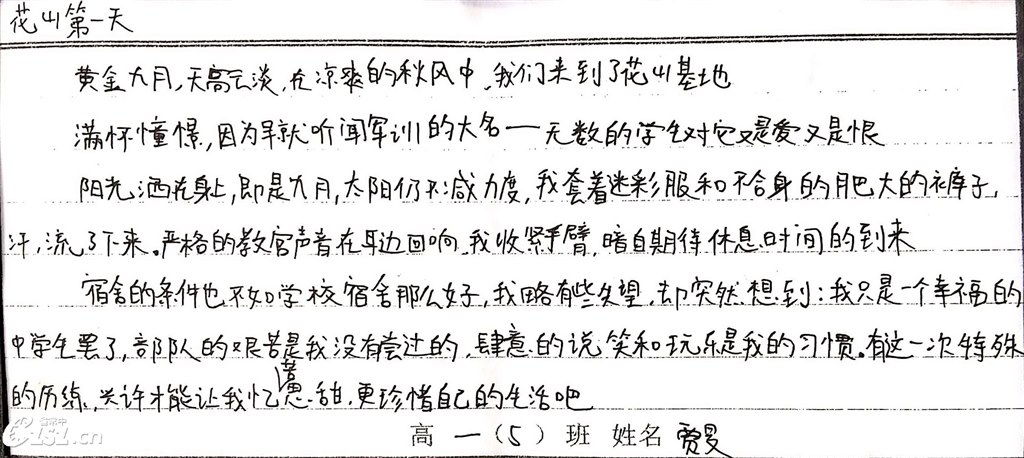 花山第一天
黄金九月,天高云淡,在凉爽的秋风中,我们来到了花山基地
满怀憧憬,因为早就听闻军训的大名——无数的学生对它又是爱又是恨
阳光洒在身上,即是九月,太阳仍不减力度,我套着迷彩服和不合身的肥大的裤子,
汗,流了下来。严格的教官声音在耳边回响,我收紧手臂,暗自期待休息时间的到来
宿舍的条件也不如学校宿舍那么好,我略有些失望,却突然想到:我只是一个幸福的
中学生罢了,部队的艰苦是我没有尝过的,肆意的说笑和玩乐是我的习惯。有这一次特殊
的历练,兴许才能让我忆苦思甜,更珍惜自己的生活吧
高一(5)班 姓名